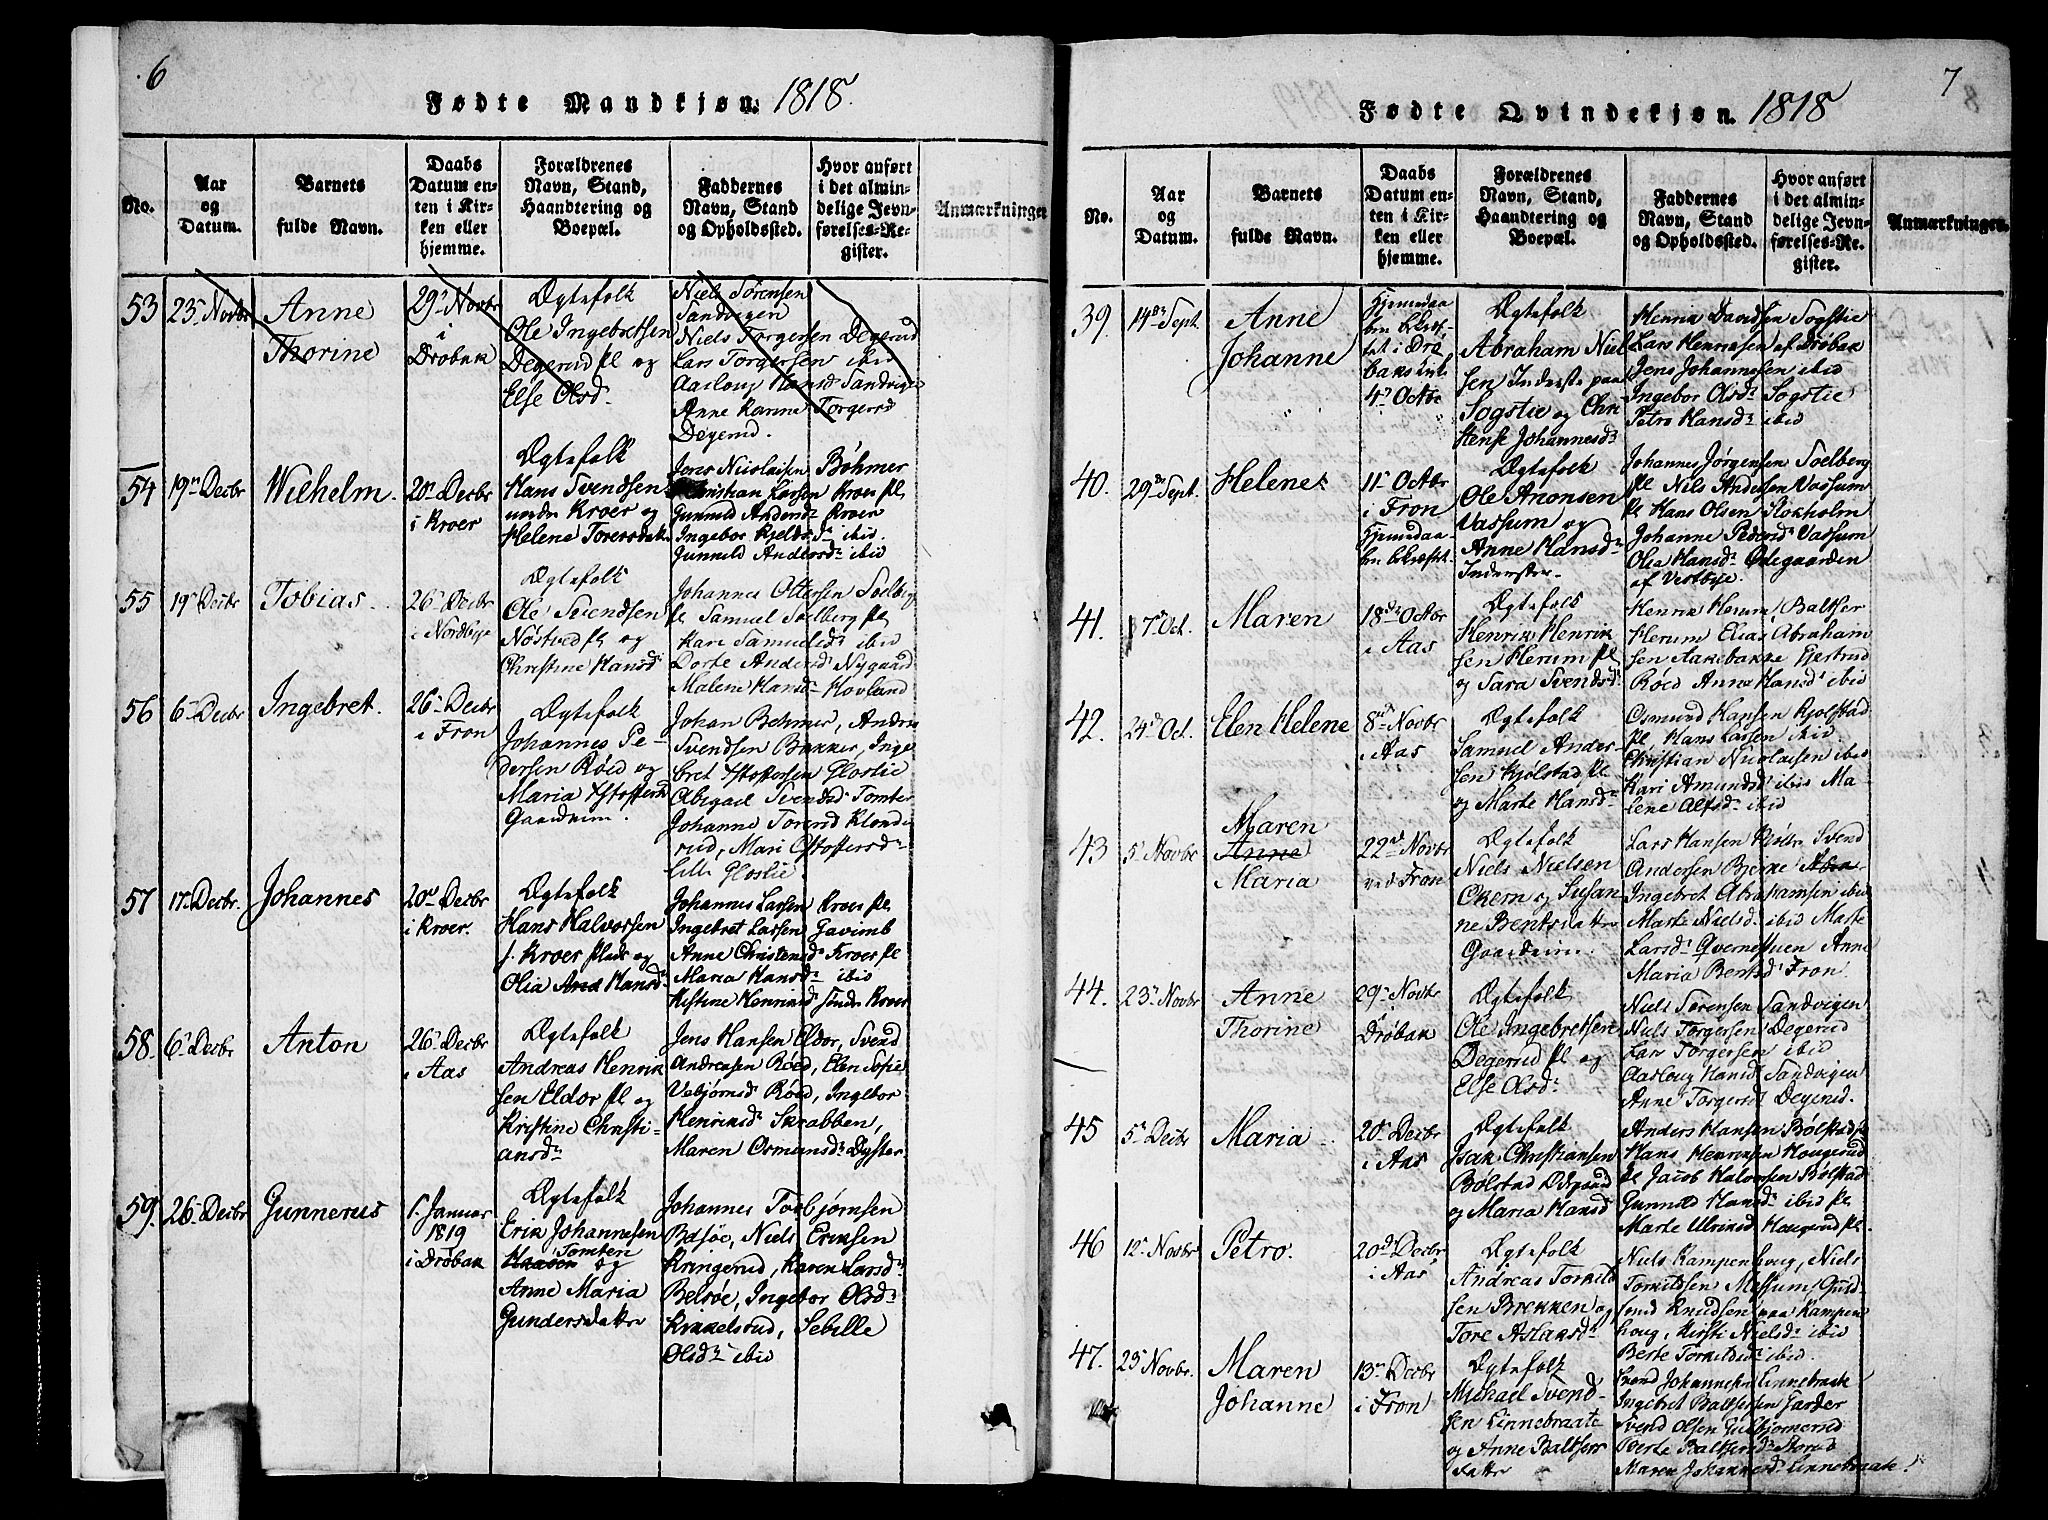 6
Fødte Mandkjøn. 1818.
No.
Aar
og
Datum.
Barnets
fulde Navn.
Daabs
Datum en-
ten i Kir-
ken eller
hjemme.
Forældrenes
Navn, Stand,
Haandtering og
Boepæl.
Faddernes
Navn, Stand
og Opholdssted.
Hvor anført
i det almin-
delige Jevn-
førelses-Re-
gister.
Anmærkninger
53
23 Novbr
Anne
Thorine
29 Novbr
i
Drøbak
Ægtefolk
Ole Ingebretsen
Degerud pl og
Else Olsd.
Niels Sørensen
Sandvigen
Niels Torgersen Degerud
Lars Torgersen ibid
Aaslaug Hansd Sandvigen
Anne Karine Torgersd
Degerud.
54
19 Decbr
Wilhelm.
20 Decbr
i Kroer
Ægtefolk
Hans Svendsen
under Kroer og
Helene Toersdatt
Jens Nicolaisen Bøhmer
Christian Larsen Kroer pl
Gunnild Andersd Kroer
Ingebor Kjeldsd ibid.
Gunnild Andersd ibid
55
19 Decbr
Tobias.
26 Decbr
i Nordbye
Ægtefolk
Ole Svendsen
Nøstved pl og
Christine Hansd
Johannes Ottersen Soelberg
pl Samuel Soelberg pl
Kari Samuelsd ibid
Dorte Andersd Nygaard
Malene Hansd Hovland
56
6 Decbr
Ingebret.
26 Decbr
i Fron
Ægtefolk
Johannes Pe-
dersen Røed og
Maria Hstoffersd
Gaardeiere.
Johan Behmer, Andrea
Svendsen Bakker, Inge
bret Hstoffersen Glostie
Abigael Svendsd Tomter
Johanne Toersd Klonde
rud, Mari Hstoffersd
Lille Glostie.
57
17 Decbr.
Johannes
20 Decbr
i Kroer.
Ægtefolk
Hans Halvorsen
f. Kroer plads og
Olia And Hansd
Johannes Larsen Kroer pl
Ingebret Larsen Gavimb
Anne Christensd Kroer pl
Maria Hansd ibid
Kistine Henriksd Søndre Kroer
58.
6 Decbr
Anton
26 Decbr
i Aas
Ægtefolk
Andreas Henrik
sen Eldor pl og
Kristine Christi-
ansd
Jens Hansen Eldor, Svend
Andreasen Røed, Elen Sofie
Vebjørnsd Røed, Ingebor
Henriksd Skrabben,
Maren Osmundsd Dyster.
59.
26 Decbr
Gunnerus
1. Januar
1819
i Drøbak
Ægtefolk
Erik Johannesen
Tomten
og
Anne Maria
Gundersdatter
Johannes Torbjørnsen
Belsøe, Niels Eriksen
Kringerud, Karen Larsd
Belsøe, Ingebor Olsd
Kinkelsrud, Sebille
Olsd ibid
7
Fødte Qvindekjøn. 1818
No.
Aar
og
Datum.
Barnets
fulde Navn.
Daabs
Datum en-
ten i Kir-
ken eller
hjemme.
Forældrenes
Navn, Stand,
Haandtering og
Boepæl.
Faddernes
Navn, Stand
og Opholdssted.
Hvor anført
i det almin-
delige Jevn-
førelses-Re-
gister.
Anmærkninger.
39.
14 Sept
Anne
Johanne
Hjemedaa
ben bekræf-
tet i Drø
baks
4 Octbr
Ægtefolk
Abraham Niel
sen Inderste paa
Sogstie og Chri
stense Johannesd
Henrik Davidsen Sogstie
Lars Henriksen af Drøbak
Jens Johannesen ibid
Ingebor Olsd Sogstie
Petro Hansd ibid
40.
29 Sept.
Helene.
11 Octbr
i Fron
Hjemedaa-
ben bekræftet.
Ægtefolk
Ole Aronsen
Vassum og
Anne Hansd
Inderster.
Johannes Jørgensen Soelberg
pl Nils Andersen Vassum
pl Hans Olsen Stokholm
Johanne Pedersd Vassum
Olia Hansd Ødegaarden
af Vestbye.
41.
17 Oct.
Maren
18 Octbr
i Aas
Ægtefolk
Henrik Henrik
sen Herum pl
og Sara Svendsd
Henrik Herum Baltser
Herum Elias Abraham
sen Aakebakke Gjertrud
Røed Anne Hansd ibid
42.
24 Oct.
Elen Helene
8 Novbr
i Aas
Ægtefolk
Samuel Ander-
sen Kjølstad pl
og Marte Hansd
Osmund Hansen Kjolstad
pl Hans Larsen ibid
Christian Nicolaisen ibid
Kari Amundsd ibid Ma-
lene Olfsd ibid
43
5 Novbr
Maren
Anne
Maria
22 Novbr
ved Fron
Ægtefolk
Niels Nielsen
Okern og Susan
ne Bentsdatter
Gaardeiere.
Lars Hansen Svend
Andersen Bjerke
Ingebret Abrahamsen ibid
Marte Nielsd. ibid Marte
Larsd Qvernstuen Anne
Maria Bentsd Fron
44.
23 Novbr
Anne
Thorine
29 Novbr
Drøbak
Ægtefolk
Ole Ingebretsen
Degerud pl og
Else Olsd
Niels Sørensen Sandvigen
Niels Torgersen Degerud
Lars Torgersen ibid
Aaslaug Hansd Sandvigen
Anne Torgersd Degerud.
45
5 Decbr
Maria
20 Decbr
i Aas
Ægtefolk
Isak Christiansen
Bølstad Ødegaard
og Maria Hansd
Anders Hansen Bølstad pl
Hans Henriksen Haugerud
pl Jacob Halvorsen Bølstad
Gunnild Hansd ibid pl
Marte Ulriksd Haugerud pl
46
12 Novbr
Petro.
20 Decbr
i Aas
Ægtefolk
Andreas Torkild
sen Brekken og
Tore Aslaksd
Niels Kampenhoug, Niels
Torkildsen Myssum Guld
smed Knudsen paa Kampen
houg, Kirsti Nielsd ibid
Berte Torkildsd ibid.
47.
25 Novbr.
Maren
Johanne
13 Decbr
i Fron
Ægtefolk
Michael Svend-
sen Linnebraate
og Anne Baltsers
datter
Svend Johannesen Linnebraate
Ingebret Baltsersen Garder
Svend Olsen Gulbjørnsrud
Berte Baltsersd Storud
Maren Johannesd Linnebraate.